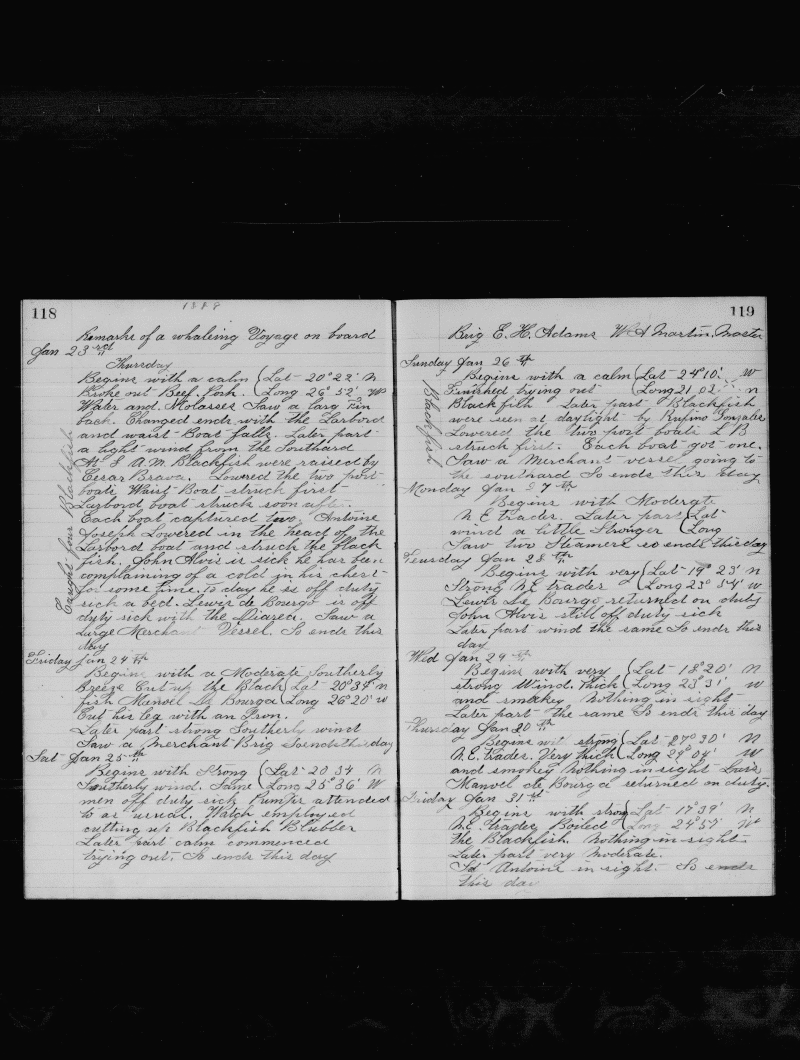 118
Remarks of a whaleing Voyage on board
Jan 23
Thursday
Begins with a calm (Lat 20° 22' N
Broke out Beef, Pork. (Long 26° 52' W
Water and Molasses Saw a larg Fin
back. Changed ends with the Larbord
and waist Boat falls. Later part
a light wind from the Southard
At 8 A.M. Blackfish were raised by
Cesar Brava. Lowered the two port
boats Waist Boat struck first
Larbord boat struck soon after.
Each boat captured two. Antoine
Joseph Lowered in the head of the
Larbord boat and struck the black
fish. John Alvis is sick he has been
complaming of a cold in his chest
for some time, to day he is off duty
sick a bed. Lewis de Bourgo is off
duty sick with the Diarea. Saw a
large Merchant Vessel. So ends this
day
Caught four Blackfish
Friday Jan 24th
Begins with a Moderate Southerly
Breeze Cut up the Black (Lat 20° 34' N
fish Manoel De Bourga (Long 26° 20' W
Cut his leg with an Iron.
Later part strong Southerly wind
Saw a Merchant Brig So ends this day
Sat Jan 25th
Begins with Strong (Lat 20 34 N
Southerly wind. Same (Long 25° 36' W
men off duty sick Pumps attended
to as usual. Watch employed
cutting up Blackfish Blubber
Later part calm commenced
trying out. So ends this day
119
Brig E. H. Adams W A Martin. Master
Sunday Jan 26th
Begins with a calm (Lat 24° 10' W
Finished trying out (Long 21 02 N
Blackfish Later part Blackfish
were seen at daylight by Rufino Gonzales
Lowered the two port boats L B
struck first. Each boat got one.
Saw a Merchant vessel going to
the southard So ends this day
Blackfish
Monday Jan 27th
Begins with Moderate
N E trades. Later part (Lat
wind a little Stronger (Long
Saw two Steamers so ends this day
Teusday Jan 28th
Begins with very (Lat 19° 23' N
Strong N.E trades (Long 23° 54' W
Lewis De Bourgo returned on duty
John Alvis still off duty sick
Later part wind the same So ends this
day
Wed Jan 29th
Begins with very (Lat 18° 20' N
strong Wind. Thick (Long 23° 31' W
and smokey Nothing in sight
Later part the same So ends this day
Thursday Jan 30th
Begins wit strong (Lat 30' N
N.E. trades. Very thick (Long 24° 04' W
and smokey nothing in sight
Manoel de Bourga returned on duty.
Friday Jan 31st
Begins with strong (Lat 17° 39' N
N.E trades Boiled (Long 24° 57' W
the Blackfish. Nothing in sight
Later part very Moderate.
Sd Antoine in sight. So ends
this day